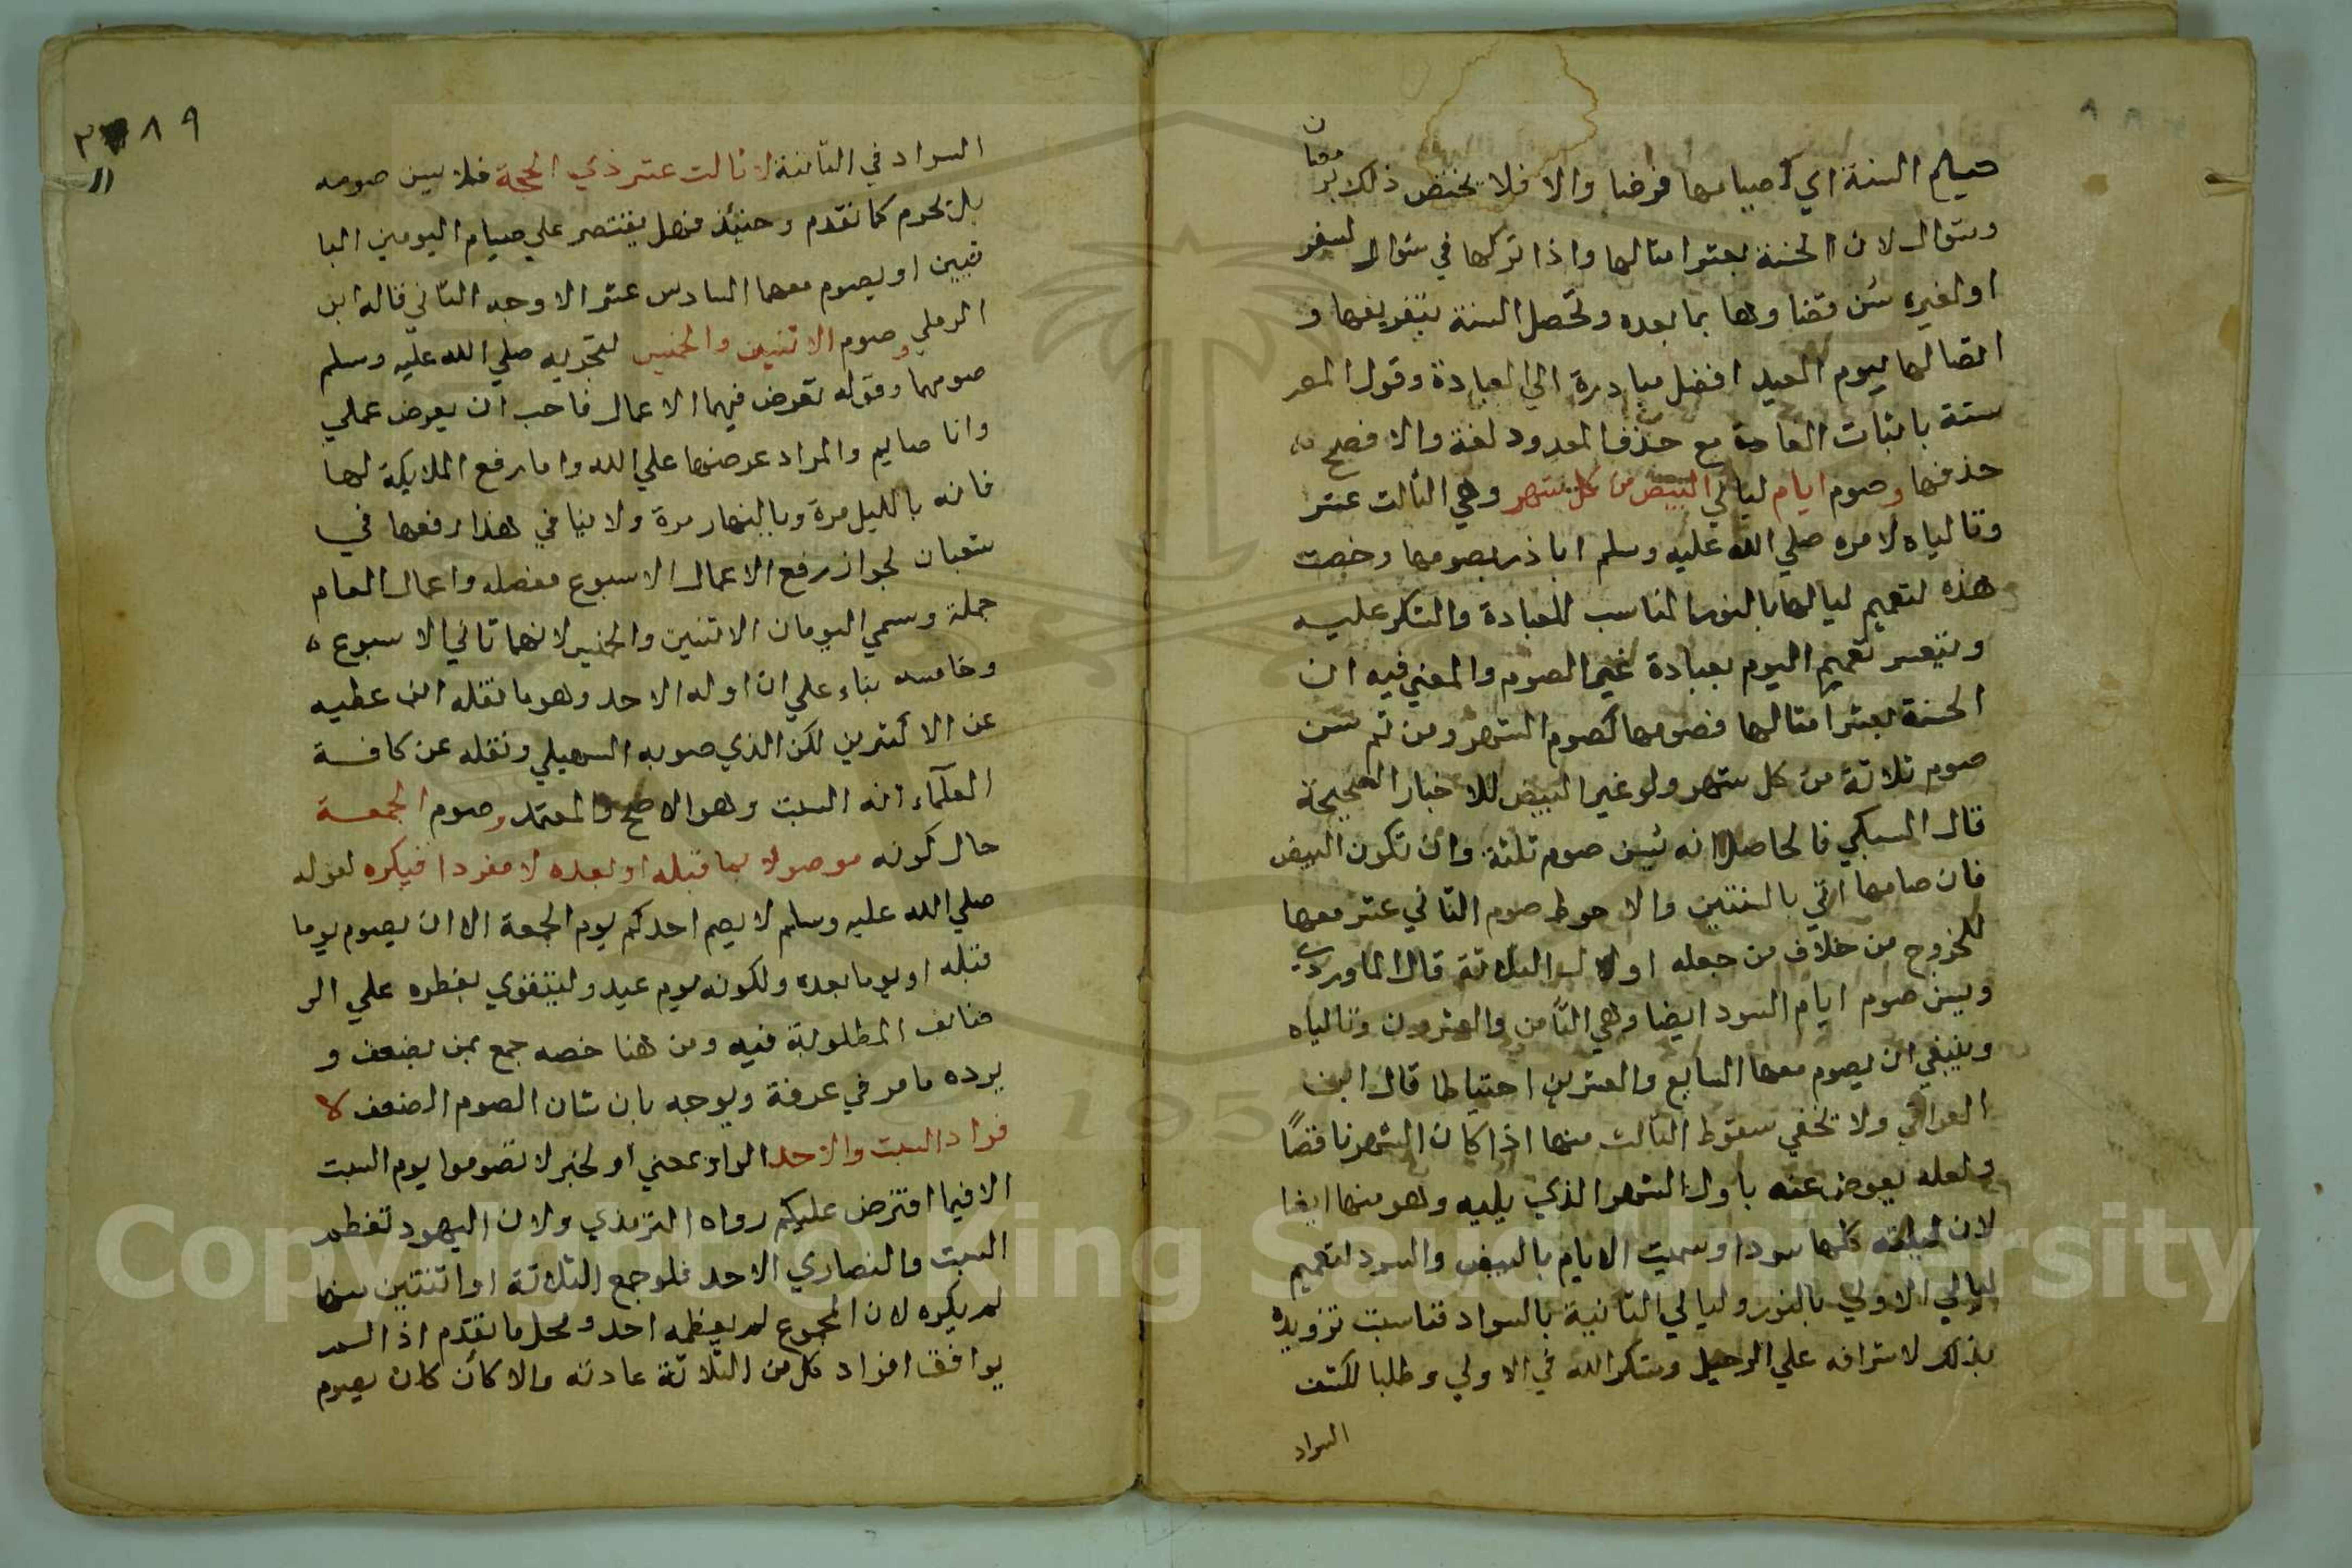 صيام السنة اي كصيامها فرضا والا فلا يختص ذلك برمضان
وشوال لان الحسنة بعشر امثالها واذا تركها في شوال لسفر
او لغيره سن قضاوها بما بعده وتحصل السنة بتفريقها و
اتصالها بيوم العيد افضل مبادرة الي العبادة وقول المص
ستة باثبات التا مع حذف المعدود لغة والا فصح
حذفها وصوم ايام ليالي البيض من كل شهر وهي الثالث عشر
وتالياه لامره صلي الله عليه وسلم ابا ذر بصومها وخصت
هذه لتعميم لياليها بالنور المناسب للعبادة والشكر عليه
ويتعسر تعميم اليوم بعبادة غير الصوم والمعني فيه ان
الحسنة بعشر امثالها فصومها كصوم الشهر ومن ثم سن
صوم ثلاثة من كل شهر ولو غير البيض للاخبار الصحيحة
قال السبكي فالحاصل انه يسن صوم ثلثة وان تكون البيض
فان صامها اتي بالسنتين والاحوط صوم الثاني عشر معها
للخروج من خلاف من جعله اول الثلاثة قال الماوردي
ويسن صوم ايام السود ايضا وهي الثامن والعشرون وتالياه
وينبغي ان يصوم معها السابع والعشرين احتياطا قال ابن
العراقي ولا تخفي سقوط الثالث منها اذا كان الشهر ناقصا
ولعله يعوض عنه باول الشهر الذي يليه وهو منها ايضا
لان ليلته كلها سودا وسميت الايام بالبيض والسود لتعميم
ليالي الاولي بالنور وليالي الثانية بالسواد فناسبت تزويده
بذلك لاشرافه علي الرحيل وشكر الله في الاولي وطلبا لكشف
السواد
٨٩
السواد في الثانية لا ثالث عشر ذي الحجة فلا يسن صومه
بل يحرم كما تقدم وحنيئذ فهل يقتصر علي صيام اليومين البا
قيين او يصوم معهما السادس عشر الاوجه الثاني قاله ابن
الرملي وصوم الاثنين والخميس لتحريه صلي الله عليه وسلم
صومهما وقوله تعرض فيهما الاعمال فاحب ان يعرض عملي
وانا صايم والمراد عرضها علي الله واما رفع الملايكة لها
فانه بالليل مرة وبالنهار مرة ولا ينافي هذا رفعها في
شعبان لجواز رفع الاعمال الاسبوع مفصله واعمال العام
جملة وسمي اليومان الاثنين والخميس لانهما ثاني الاسبوع
وخامسه بناء علي ان اوله الاحد وهو ما نقله ابن عطيه
عن الاكثرين لكن الذي صوبه السهيلي ونقله عن كافة
العلماء انه السبت وهو الاصح والمعتمد وصوم الجمعة
حال كونه موصولا بما قبله او بعده لا مفردا فيكره لقوله
صلي الله عليه وسلم لا يصم احدكم يوم الجمعة الا ان يصوم يوما
قبله او يوما بعده ولكونه يوم عيد وليتقوي بفطره علي الو
ظايف المطلوبة فيه ومن هنا خصه جمع بمن يضعف و
يرده ما مر في عرفة ويوجه بان شان الصوم الضعف لا
فراد السبت والاحد الواو بمعني او لخبر لا تصوموا يوم السبت
الا فيما افترض عليكم رواه الترمذي ولان اليهود تعظم
السبت والنصاري الاحد فلو جمع الثلاثة او اثنتين منها
لم يكره لان المجموع لم يعظمه احد ومحل ما تقدم اذا لم
يوافق افراد كل من الثلاثة عادته والا كان كان يصوم
Copyright © King Saud University
1957